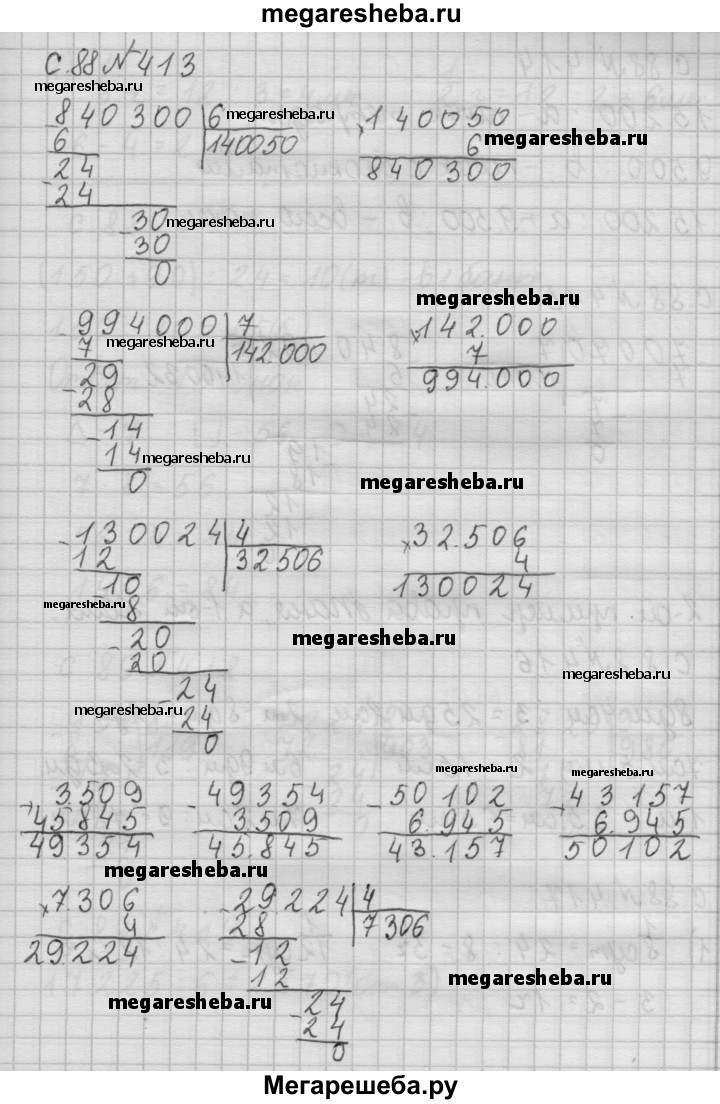 megaresheba.ru
С.88 № 413
megaresheba.ru
840300 6 megaresheba.ru 140050
6 140050 6 megaresheba.ru
24 840300
24
30 megaresheba.ru
30
0
megaresheba.ru
994000 7 142.000
7 megaresheba.ru 142.000 7
29 994.000
28
14
14 megaresheba.ru
0 megaresheba.ru
130024 4 32.506
12 32506 4
10 130024
megaresheba.ru 8
20 megaresheba.ru
20 megaresheba.ru
24
megaresheba.ru 24
0
megaresheba.ru megaresheba.ru
3.509 49354 50102 43157
45.845 3.509 6.945 6.945
49354 45.845 43.157 50102
megaresheba.ru
7.306 29.224 4
4 28 7306
29.224 12
12 megaresheba.ru
megaresheba.ru 24
24
0
Мегарешеба.ру